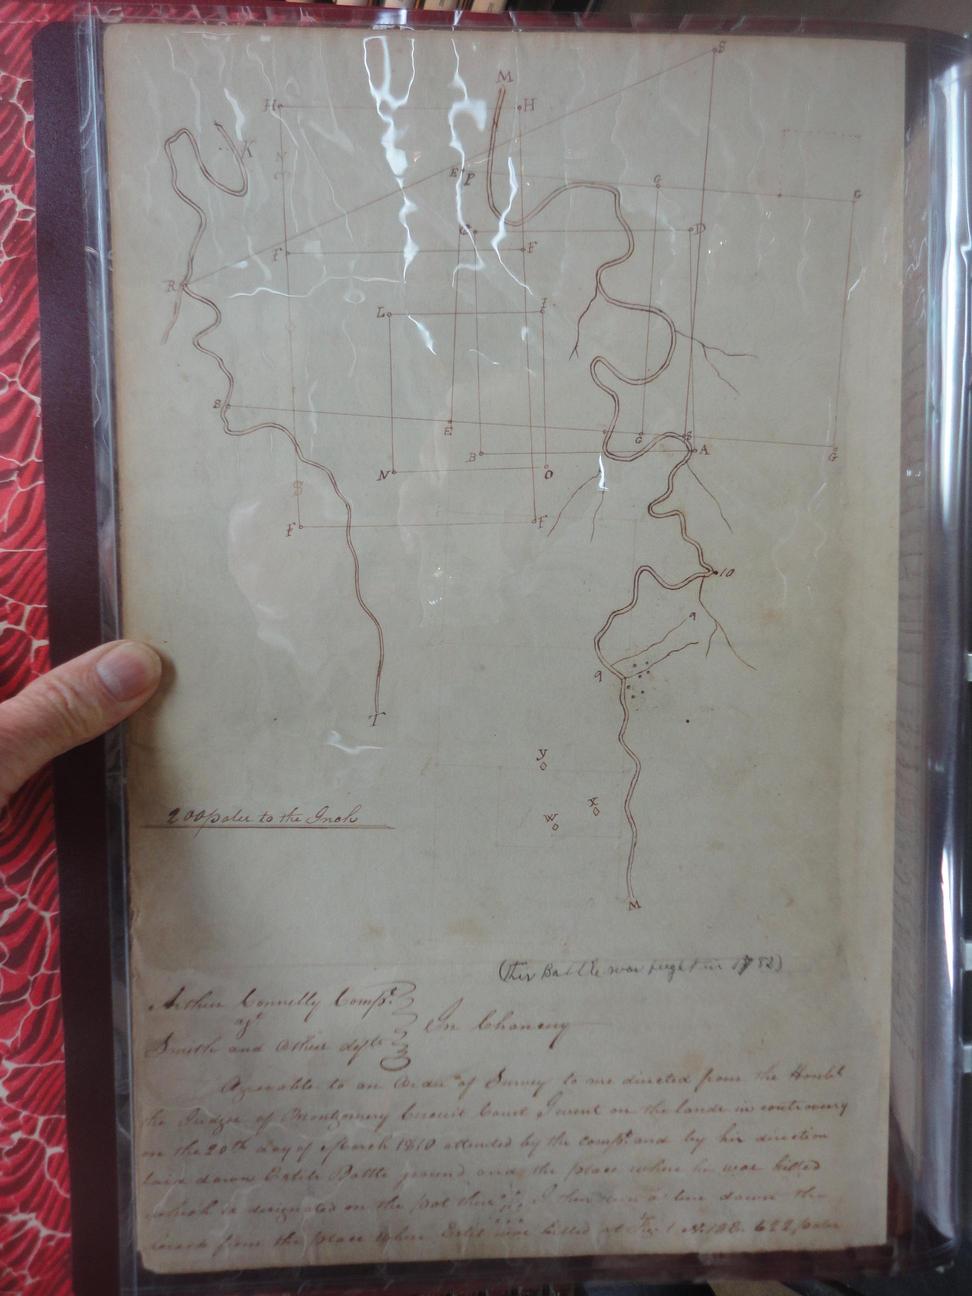 S
M
H
H
K
E
P
G
G
C
D
F
F
R
L
I
8
E
G
S
B
A
G
N
O
S
F
F
10
9
9
T
y
x
w
200 poles to the Inch
M
(This Battle was fought in 1782)
Arthur Connelly Compt.
agt
In Chancery
Smith and others defts
Agreeable to an Order of Survey to me directed from the Honbl
the Judges of Montgomery Circuit Court I went on the lands in controversy
on the 20th day of March 1810 attended by the compt. and by his direction
laid down Estils Battle ground and the place where he was killed
which is designated on the plat thus I then run a line down the
from the place where Estil was killed at 622 poles